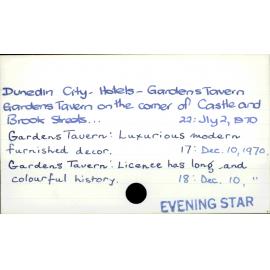 Dunedin City - Hotels - Gardens Tavern
Gardens Tavern on the corner of Castle and
Brook Streets... 22: Jly 2, 1970
Gardens Tavern: Luxurious modern
furnished decor. 17: Dec. 10, 1970.
Gardens Tavern: Licence has long and
colourful history. 18: Dec. 10, "
EVENING STAR